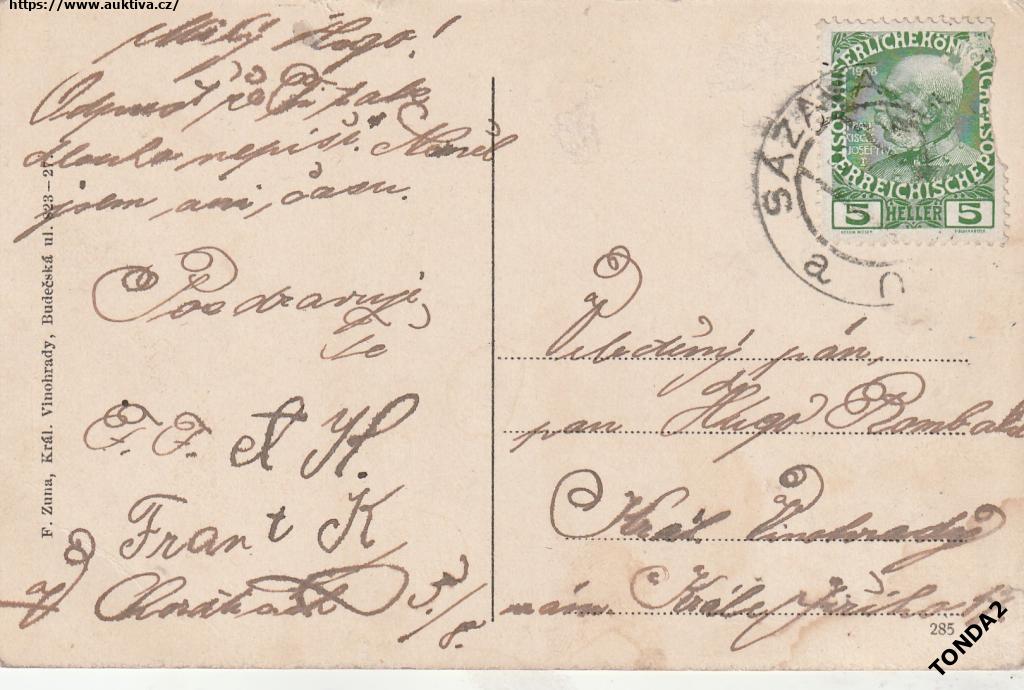 https://www.auktiva.cz/
Milý Hugo!
Odpusť že Ti tak
dlouho nepíši. Neměl
jsem ani času.
Pozdravuje
Te
F. F. et H.
Frant K
5/8.
F. Zuna, Král. Vinohrady, Budečská ul. 823-27.
SÁZAVA
a
1908
KAISERLICHE KÖNIGLICHE
ÖSTERREICHISCHE POST
5 HELLER 5
Veleděný pán,
pan Hugo
Král. Vinohrady
nám. Krále Jiřího
285
TONDA2